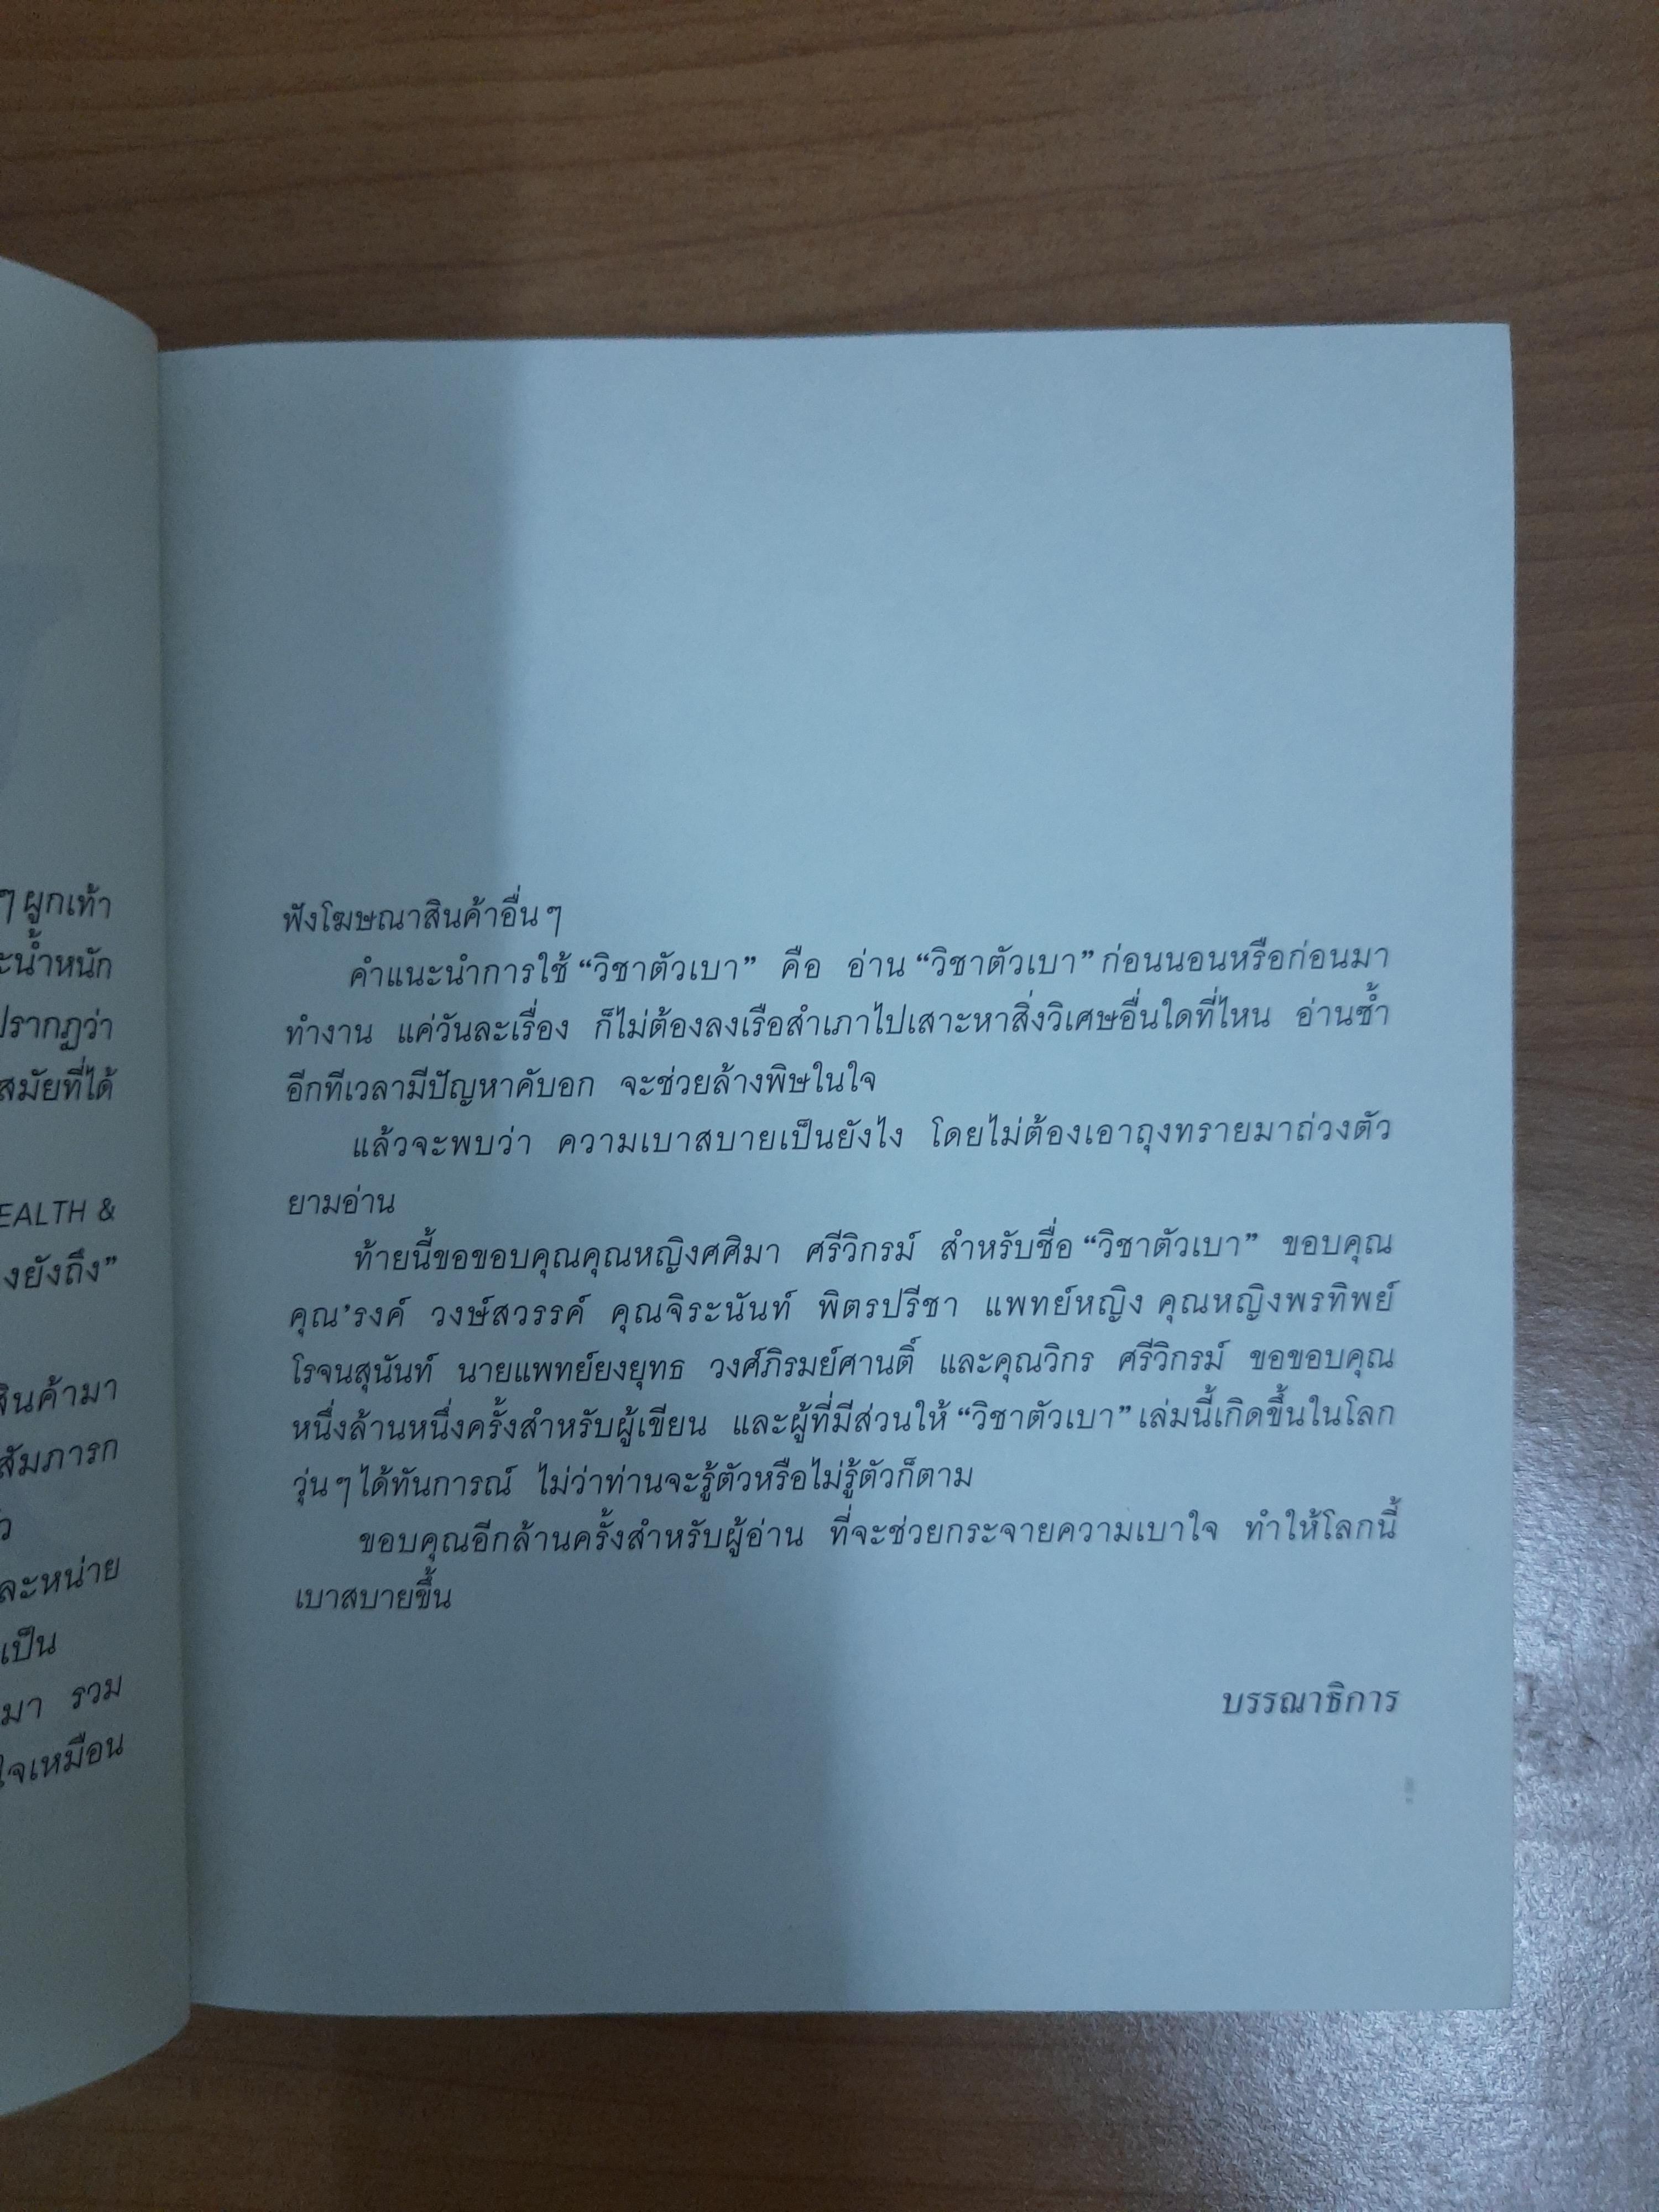 ๆ ผูกเท้า
น้ำหนัก
ปรากฏว่า
สมัยที่ได้
EALTH &
งยังถึง”
สินค้ามา
สัมภารก
ว
ละหน่าย
เป็น
มา รวม
ใจเหมือน
ฟังโฆษณาสินค้าอื่น ๆ
คำแนะนำการใช้ “วิชาตัวเบา” คือ อ่าน “วิชาตัวเบา” ก่อนนอนหรือก่อนมา
ทำงาน แค่วันละเรื่อง ก็ไม่ต้องลงเรือสำเภาไปเสาะหาสิ่งวิเศษอื่นใดที่ไหน อ่านซ้ำ
อีกทีเวลามีปัญหาคับอก จะช่วยล้างพิษในใจ
แล้วจะพบว่า ความเบาสบายเป็นยังไง โดยไม่ต้องเอาถุงทรายมาถ่วงตัว
ยามอ่าน
ท้ายนี้ขอขอบคุณคุณหญิงศศิมา ศรีวิกรม์ สำหรับชื่อ “วิชาตัวเบา” ขอบคุณ
คุณ’รงค์ วงษ์สวรรค์ คุณจิระนันท์ พิตรปรีชา แพทย์หญิง คุณหญิงพรทิพย์
โรจนสุนันท์ นายแพทย์ยงยุทธ วงศ์ภิรมย์ศานติ์ และคุณวิกร ศรีวิกรม์ ขอขอบคุณ
หนึ่งล้านหนึ่งครั้งสำหรับผู้เขียน และผู้ที่มีส่วนให้ “วิชาตัวเบา” เล่มนี้เกิดขึ้นในโลก
วุ่น ๆ ได้ทันการณ์ ไม่ว่าท่านจะรู้ตัวหรือไม่รู้ตัวก็ตาม
ขอบคุณอีกล้านครั้งสำหรับผู้อ่าน ที่จะช่วยกระจายความเบาใจ ทำให้โลกนี้
เบาสบายขึ้น
บรรณาธิการ